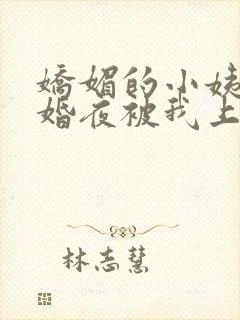 嬌媚的小姨
婚夜被我上
林志慧